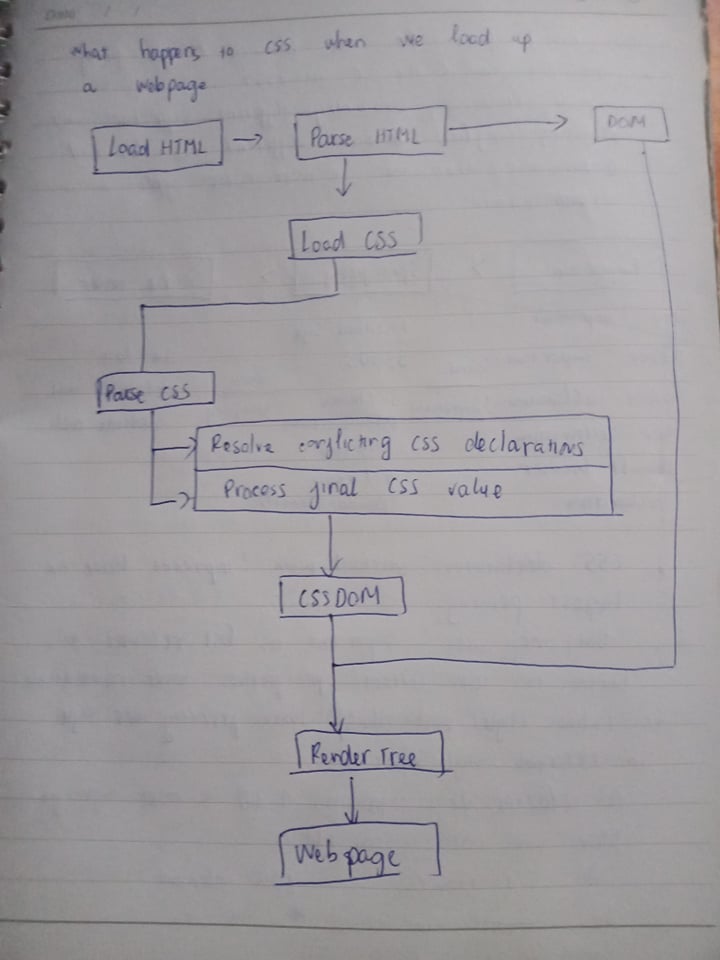 what happens to css when we load up
a webpage
Load HTML
Parse HTML
DOM
Load CSS
Parse CSS
Resolve conflicting CSS declarations
Process final CSS value
CSSDOM
Render Tree
Webpage